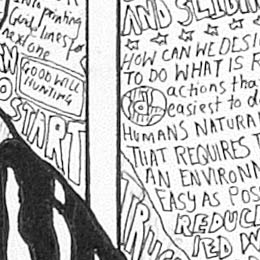 painting
Giant lines to
next one
GOOD WILL
HUNTING
START
AND SLIDIN
HOW CAN WE DESI
TO DO WHAT IS R
actions tha
easiest to d
HUMANS NATURAL
THAT REQUIRES T
AN ENVIRONM
EASY AS POS
REDUC
TRUC
IED W